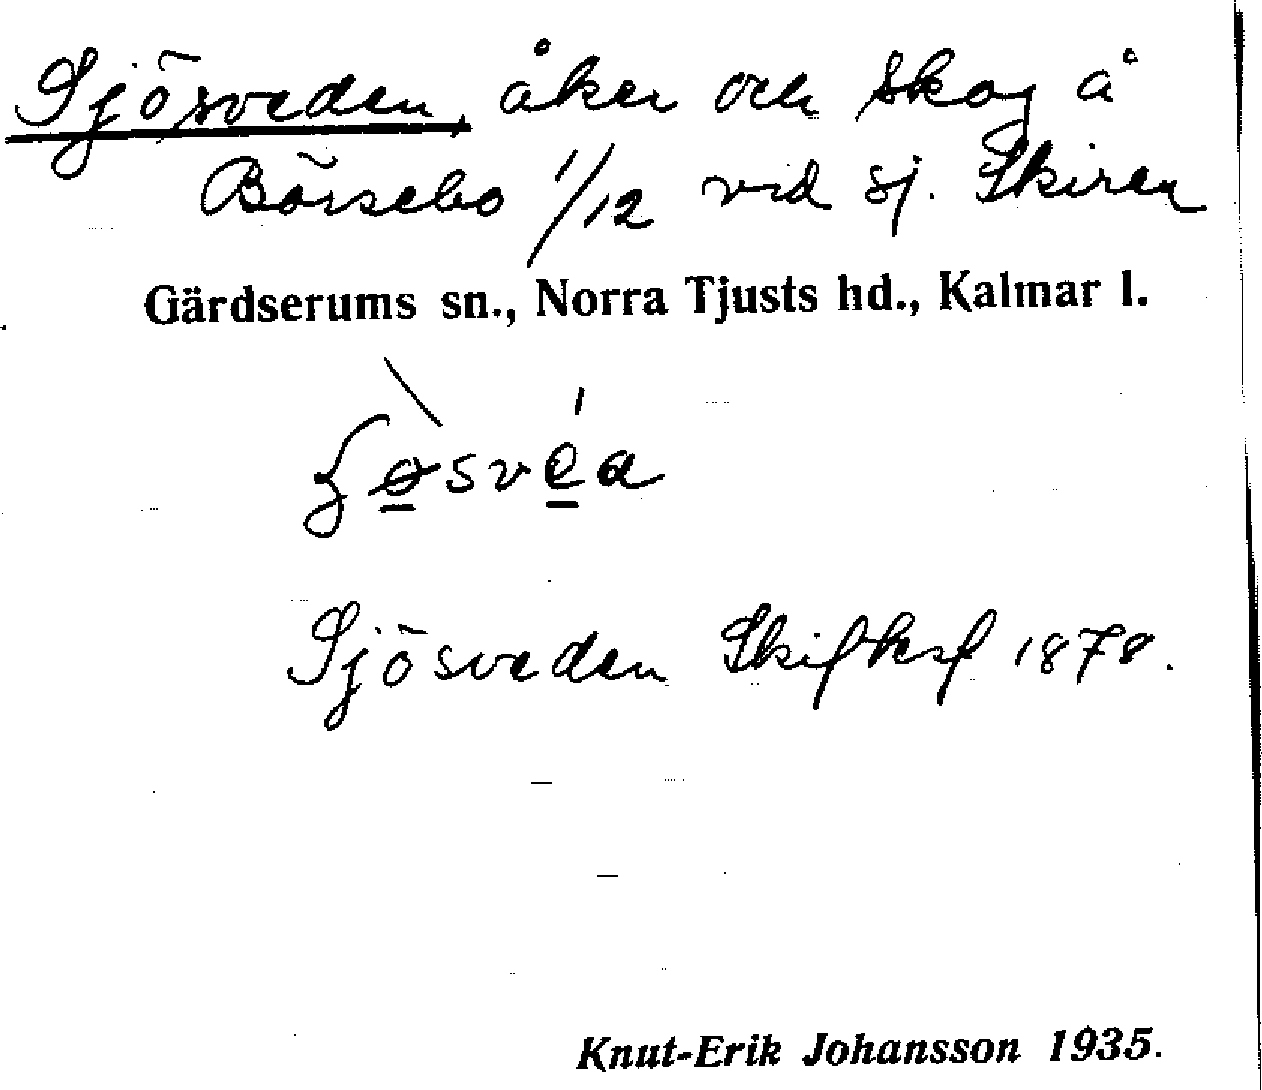 Sjösveden, åker och skog å
Börsebo 1/12 vid sj. Skiren
Gärdserums sn., Norra Tjusts hd., Kalmar l.
Sjösveden Skifksf 1878.
Knut-Erik Johansson 1935.